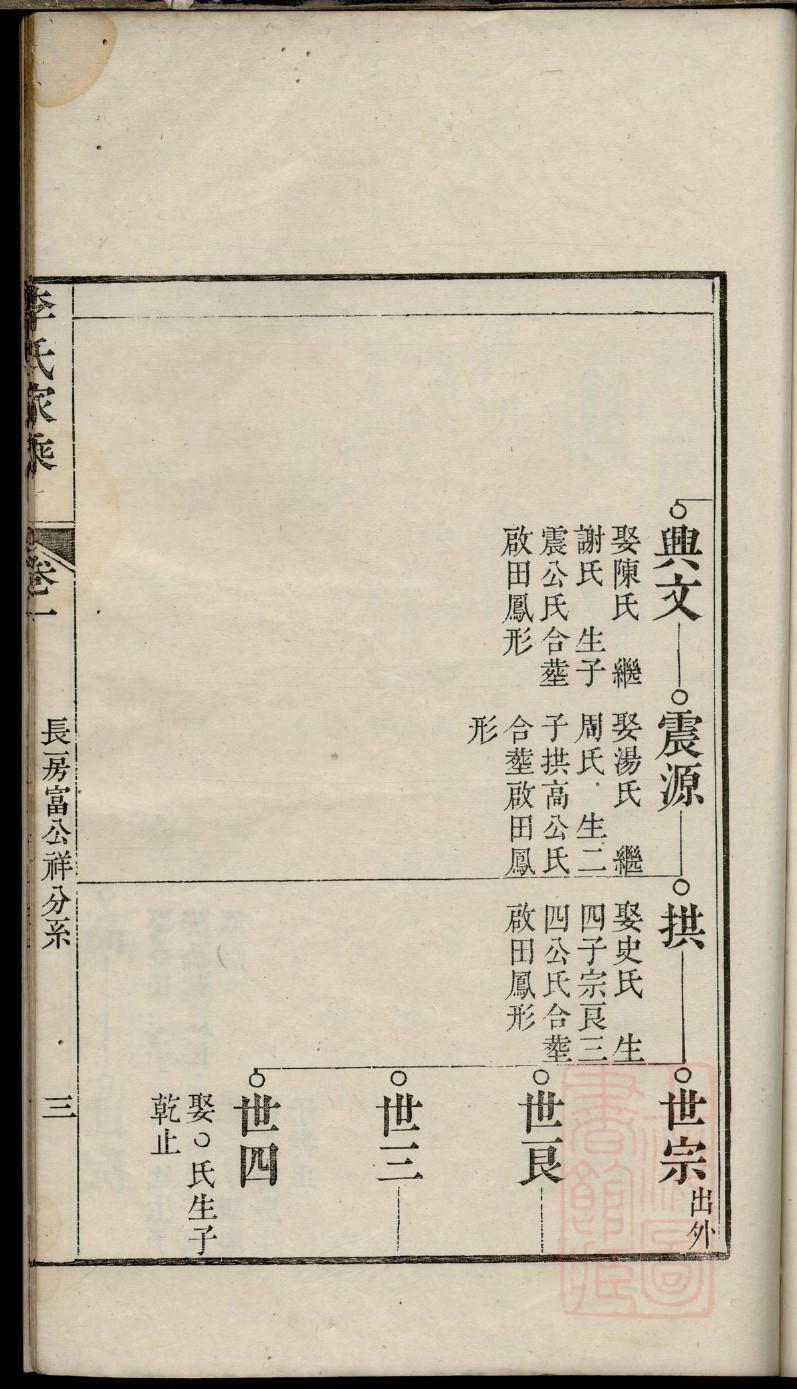 興文
娶陳氏　繼
謝氏　生子
震公氏合塟
啟田鳳形
震源
娶湯氏　繼
周氏　生二
子拱高公氏
合塟啟田鳳
形
拱
娶史氏　生
四子宗良三
四公氏合塟
啟田鳳形
世宗
出外
世良
世三
世四
娶○氏生子
乾止
李氏家乘
卷一
長房富公祥分系
三